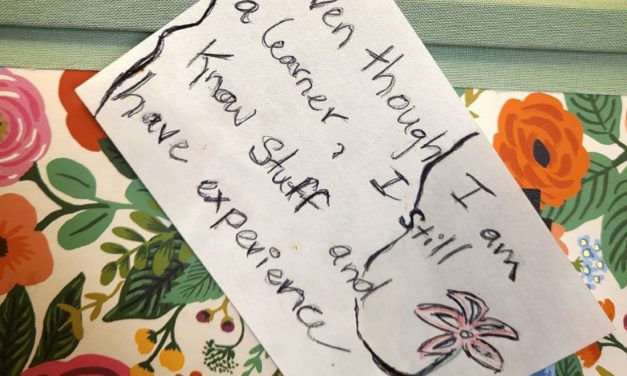 ven though I am
a learner, I still
Know Stuff and
have experience